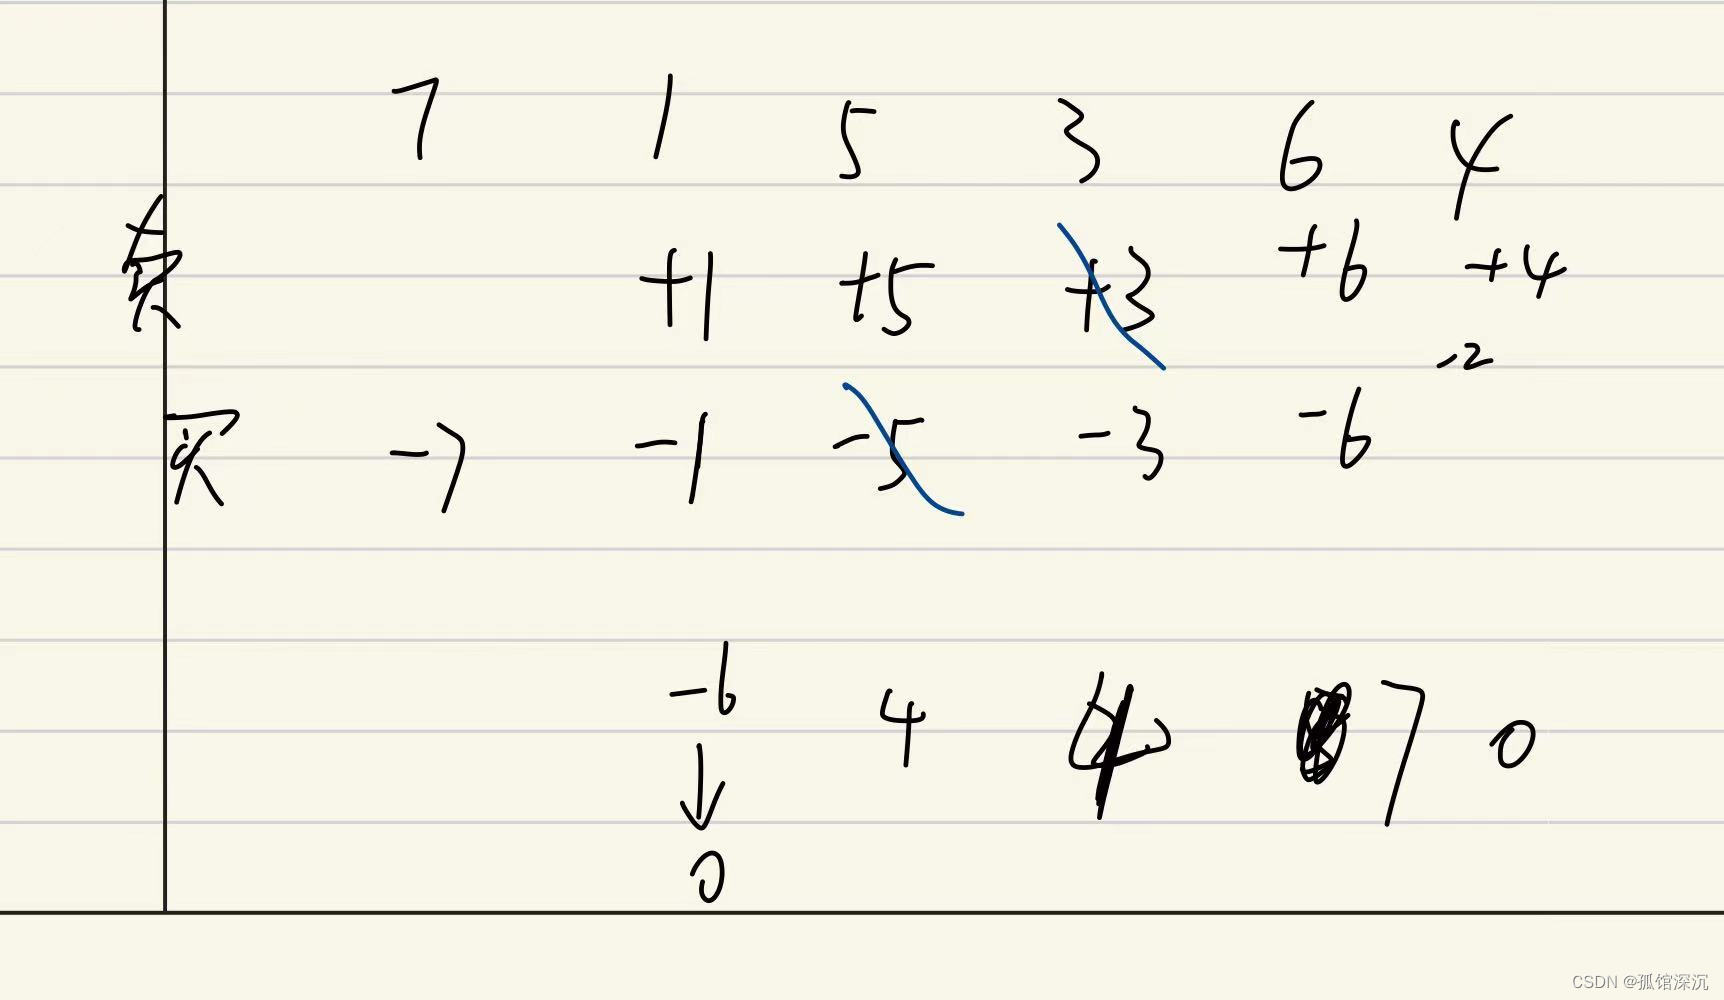 7 1 5 3 6 4
卖 +1 +5 +3 +6 +4
-2
买 -7 -1 -5 -3 -6
-6 4 4 7 0
↓
0
CSDN @孤馆深沉